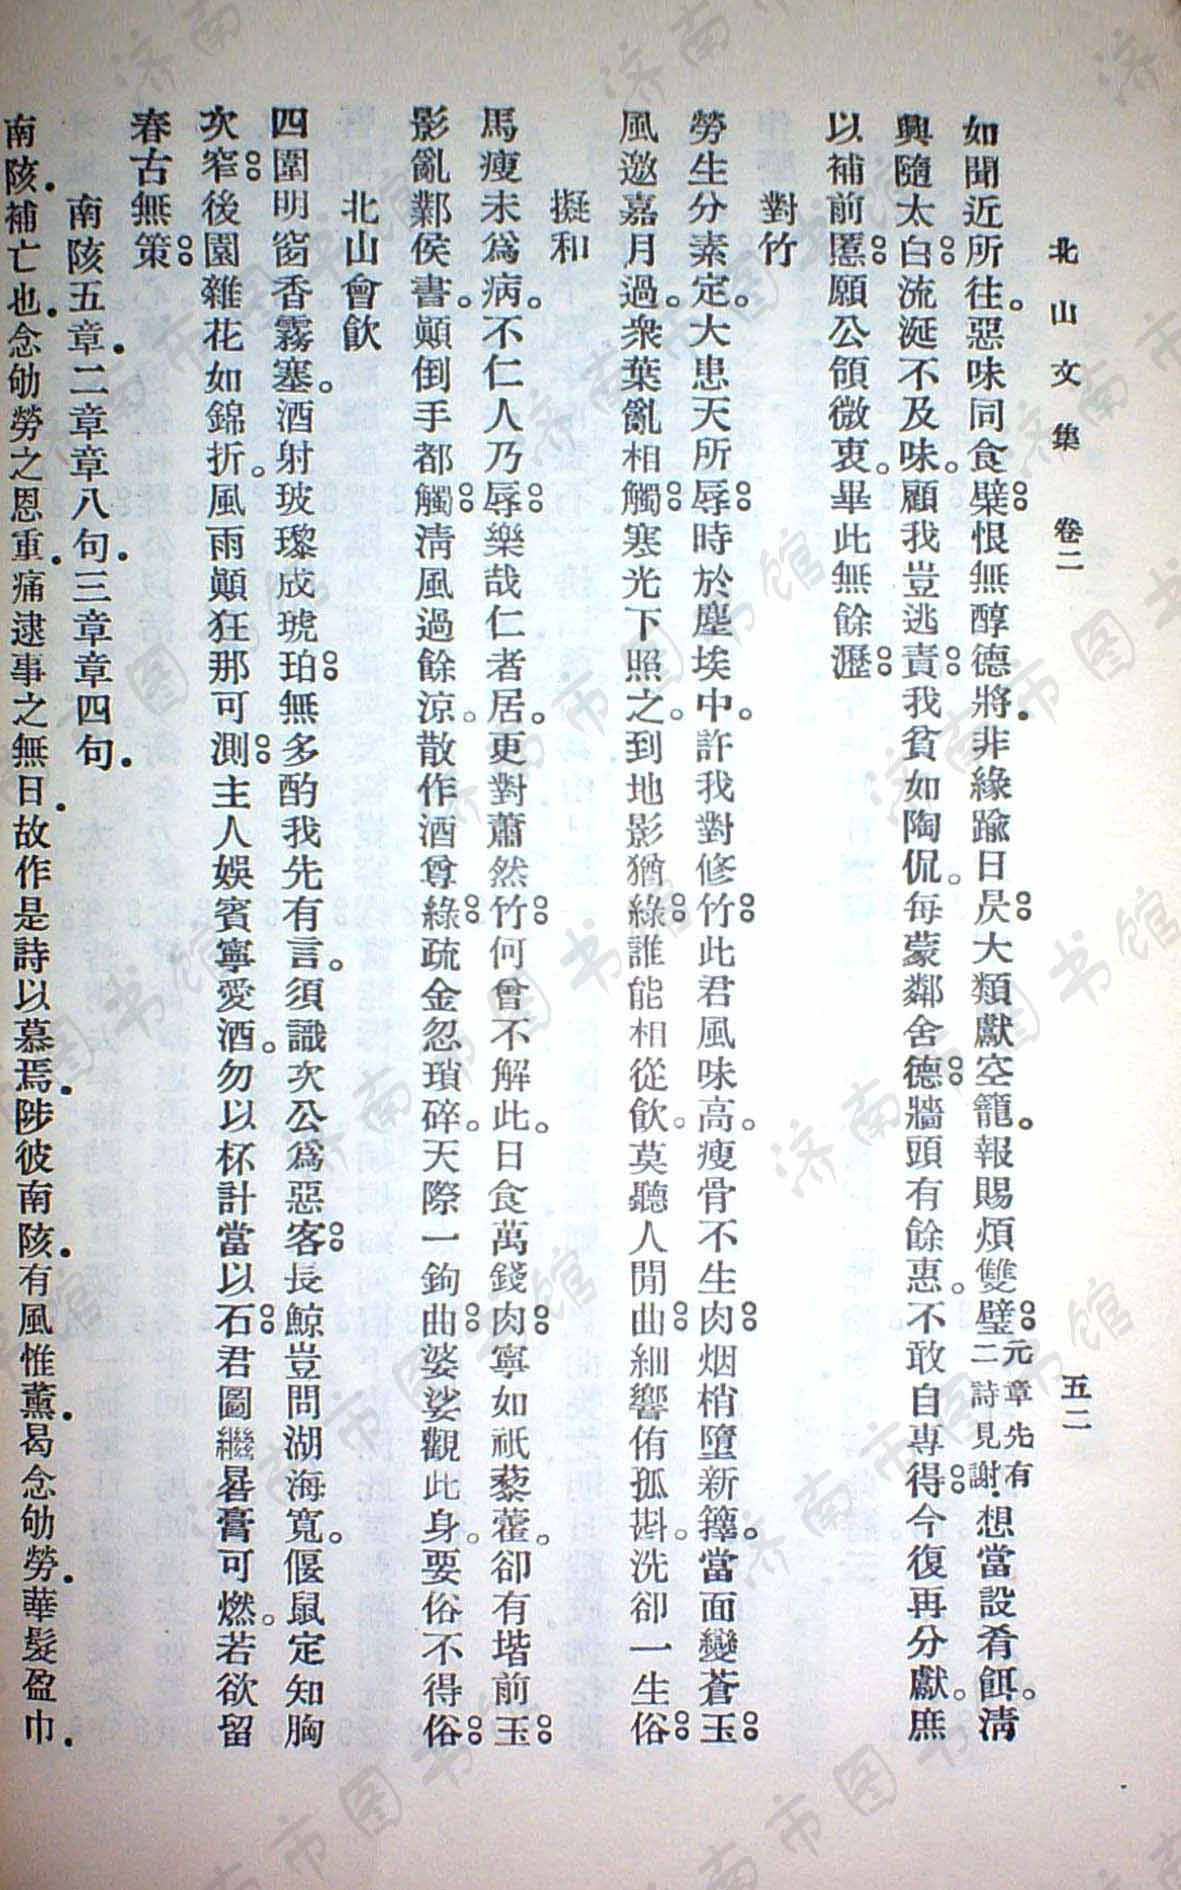 北山文集 卷二 五二
如聞近所往。惡味同食檗。恨無醇德將。非緣踰日昃。大類獻空籠。報賜煩雙璧。元章先有二詩見謝.想當設肴餌。清
興隨太白。流涎不及味。顧我豈逃責。我貧如陶侃。每蒙鄰舍德。牆頭有餘惠。不敢自專得。今復再分獻。庶
以補前慝。願公領微衷。畢此無餘瀝。
對竹
勞生分素定。大患天所辱。時於塵埃中。許我對修竹。此君風味高。瘦骨不生肉。烟梢墮新籜。當面變蒼玉。
風邀嘉月過。衆葉亂相觸。寒光下照之。到地影猶綠。誰能相從飮。莫聽人閒曲。細響侑孤斟。洗卻一生俗。
擬和
馬瘦未爲病。不仁人乃辱。樂哉仁者居。更對蕭然竹。何曾不解此。日食萬錢肉。寧如祇藜藿。卻有堦前玉。
影亂鄴侯書。顚倒手都觸。淸風過餘涼。散作酒尊綠。疏金忽瑣碎。天際一鉤曲。婆娑觀此身。要俗不得俗。
北山會飮
四圍明窗香霧塞。酒射玻瓈成琥珀。無多酌我先有言。須識次公爲惡客。長鯨豈問湖海寬。偃鼠定知胸
次窄。後園雜花如錦折。風雨顚狂那可測。主人娛賓寧愛酒。勿以杯計當以石。君圖繼晷膏可燃。若欲留
春古無策。
南陔五章.二章章八句.三章章四句.
南陔.補亡也.念劬勞之恩重.痛逮事之無日.故作是詩以慕焉.陟彼南陔.有風惟薰.曷念劬勞.華髮盈巾.